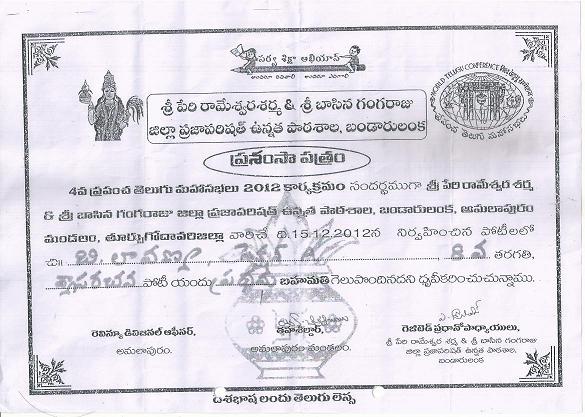 సర్వ శిక్షా అభియాన్
అందరూ చదవాలి అందరూ ఎదగాలి
శ్రీ పేరి రామేశ్వరశర్మ & శ్రీ బాసిన గంగరాజు
జిల్లా ప్రజాపరిషత్ ఉన్నత పాఠశాల, బండారులంక
ప్రశంసా పత్రం
4వ ప్రపంచ తెలుగు మహాసభలు 2012 కార్యక్రమం సందర్భముగా శ్రీ పేరి రామేశ్వర శర్మ
& శ్రీ బాసిన గంగరాజు జిల్లా ప్రజాపరిషత్ ఉన్నత పాఠశాల, బండారులంక, అమలాపురం
మండలం, తూర్పుగోదావరిజిల్లా వారిచే ది.15.12.2012న నిర్వహించిన పోటీలలో
చి॥ బి. లావణ్య 8 వ తరగతి,
పోటీ యందు ప్రథమ బహుమతి గెలుపొందినదని ధృవీకరించుచున్నాము.
రెవిన్యూ డివిజనల్ ఆఫీసర్,
అమలాపురం.
తహశీల్దార్,
అమలాపురం మండలం.
గెజిటెడ్ ప్రధానోపాధ్యాయులు,
శ్రీ పేరి రామేశ్వర శర్మ & శ్రీ బాసిన గంగరాజు
జిల్లా ప్రజాపరిషత్ ఉన్నత పాఠశాల,
బండారులంక
దేశభాషలందు తెలుగు లెస్స